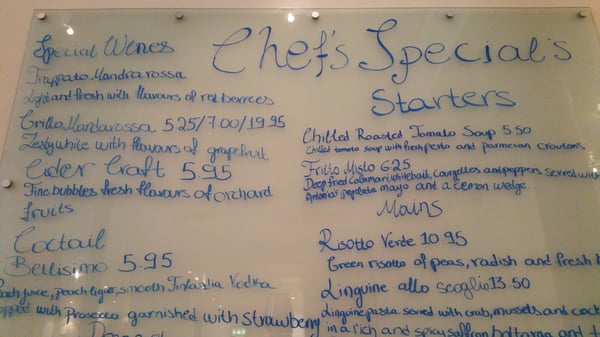 Special Wines
Frappato Mandrarossa
Light and fresh with flavours of red berrees
Grillo Mandarossa 5 25/7.00/19.95
Zesty white with flavours of grapefruit
Cider Craft 5.95
Fine bubbles fresh flavours of orchard
fruits
Coctail
Bellisimo 5.95
peach liquor, smooth Finlandia Vodka
with Prosecco garnished with strawberry
Chef's Special's
Starters
Chilled Roasted Tomato Soup 5.50
Chilled tomato soup with fresh pesto and parmesan croutons
Fritto Misto 6.25
Deep fried calamari, whitebait, courgettes and peppers served with
mayo and a lemon wedge
Mains
Risotto Verde 10.95
Green risotto of peas, radish and fresh
Linguine allo scoglio 13.50
Linguine pasta served with crab, mussels and
in a rich and spicy saffron